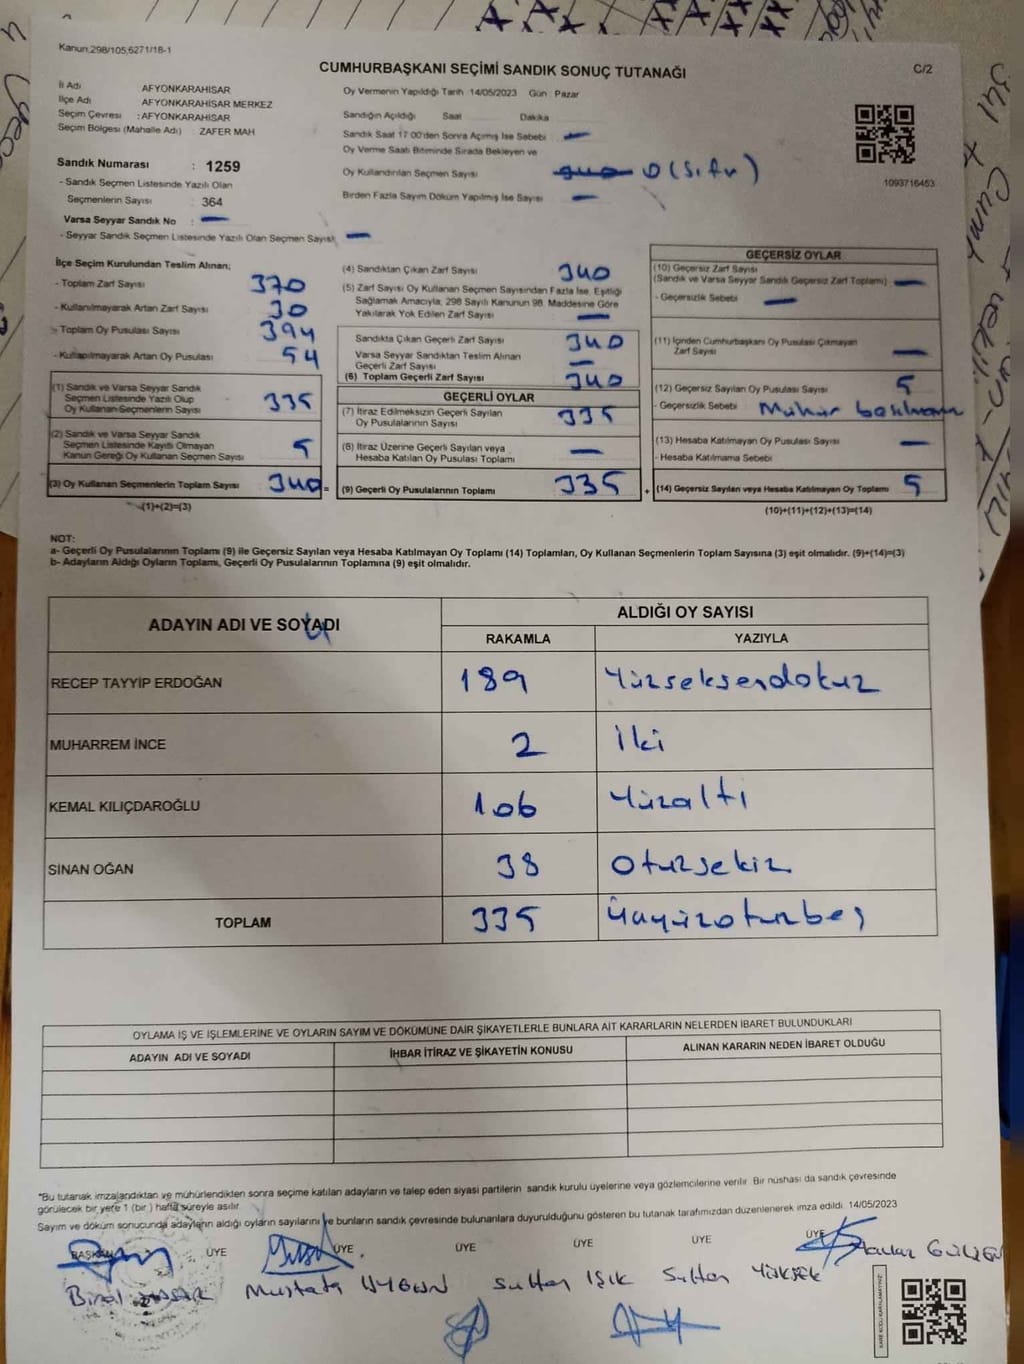 Kanun:298/105,6271/18-1
CUMHURBAŞKANI SEÇİMİ SANDIK SONUÇ TUTANAĞI
C/2
İl Adı AFYONKARAHİSAR
İlçe Adı AFYONKARAHİSAR MERKEZ
Seçim Çevresi : AFYONKARAHİSAR
Seçim Bölgesi (Mahalle Adı) : ZAFER MAH
Sandık Numarası : 1259
- Sandık Seçmen Listesinde Yazılı Olan
Seçmenlerin Sayısı : 364
Varsa Seyyar Sandık No : —
- Seyyar Sandık Seçmen Listesinde Yazılı Olan Seçmen Sayısı: —
Oy Vermenin Yapıldığı Tarih 14/05/2023 Gün : Pazar
Sandığın Açıldığı Saat Dakika
Sandık Saat 17:00'den Sonra Açılmış İse Sebebi —
Oy Verme Saati Bitiminde Sırada Bekleyen ve
Oy Kullandırılan Seçmen Sayısı 0 (Sıfır)
Birden Fazla Sayım Döküm Yapılmış İse Sayısı —
1093716453
İlçe Seçim Kurulundan Teslim Alınan;
- Toplam Zarf Sayısı 370
- Kullanılmayarak Artan Zarf Sayısı 30
- Toplam Oy Pusulası Sayısı 394
- Kullanılmayarak Artan Oy Pusulası 54
(1) Sandık ve Varsa Seyyar Sandık
Seçmen Listesinde Yazılı Olup
Oy Kullanan Seçmenlerin Sayısı 335
(2) Sandık ve Varsa Seyyar Sandık
Seçmen Listesinde Kayıtlı Olmayan
Kanun Gereği Oy Kullanan Seçmen Sayısı 5
(3) Oy Kullanan Seçmenlerin Toplam Sayısı 340 =
(1)+(2)=(3)
(4) Sandıktan Çıkan Zarf Sayısı 340
(5) Zarf Sayısı Oy Kullanan Seçmen Sayısından Fazla İse, Eşitliği
Sağlamak Amacıyla, 298 Sayılı Kanunun 98. Maddesine Göre
Yakılarak Yok Edilen Zarf Sayısı —
Sandıkta Çıkan Geçerli Zarf Sayısı 340
Varsa Seyyar Sandıktan Teslim Alınan
Geçerli Zarf Sayısı —
(6) Toplam Geçerli Zarf Sayısı 340
GEÇERLİ OYLAR
(7) İtiraz Edilmeksizin Geçerli Sayılan
Oy Pusulalarının Sayısı 335
(8) İtiraz Üzerine Geçerli Sayılan veya
Hesaba Katılan Oy Pusulası Toplamı —
(9) Geçerli Oy Pusulalarının Toplamı 335 +
GEÇERSİZ OYLAR
(10) Geçersiz Zarf Sayısı
(Sandık ve Varsa Seyyar Sandık Geçersiz Zarf Toplamı) —
- Geçersizlik Sebebi —
(11) İçinden Cumhurbaşkanı Oy Pusulası Çıkmayan
Zarf Sayısı —
(12) Geçersiz Sayılan Oy Pusulası Sayısı 5
- Geçersizlik Sebebi Mühür
(13) Hesaba Katılmayan Oy Pusulası Sayısı —
- Hesaba Katılmama Sebebi
(14) Geçersiz Sayılan veya Hesaba Katılmayan Oy Toplamı 5
(10)+(11)+(12)+(13)=(14)
NOT:
a- Geçerli Oy Pusulalarının Toplamı (9) ile Geçersiz Sayılan veya Hesaba Katılmayan Oy Toplamı (14) Toplamları, Oy Kullanan Seçmenlerin Toplam Sayısına (3) eşit olmalıdır. (9)+(14)=(3)
b- Adayların Aldığı Oyların Toplamı, Geçerli Oy Pusulalarının Toplamına (9) eşit olmalıdır.
ADAYIN ADI VE SOYADI
ALDIĞI OY SAYISI
RAKAMLA YAZIYLA
RECEP TAYYİP ERDOĞAN 189 Yüzseksendokuz
MUHARREM İNCE 2 İki
KEMAL KILIÇDAROĞLU 106 Yüzaltı
SİNAN OĞAN 38 Otuzsekiz
TOPLAM 335 Üçyüzotuzbeş
OYLAMA İŞ VE İŞLEMLERİNE VE OYLARIN SAYIM VE DÖKÜMÜNE DAİR ŞİKAYETLERLE BUNLARA AİT KARARLARIN NELERDEN İBARET BULUNDUKLARI
ADAYIN ADI VE SOYADI İHBAR İTİRAZ VE ŞİKAYETİN KONUSU ALINAN KARARIN NEDEN İBARET OLDUĞU
"Bu tutanak imzalandıktan ve mühürlendikten sonra seçime katılan adayların ve talep eden siyasi partilerin sandık kurulu üyelerine veya gözlemcilerine verilir. Bir nüshası da sandık çevresinde
görülecek bir yere 1 (bir ) hafta süreyle asılır.
Sayım ve döküm sonucunda adayların aldığı oyların sayılarını ve bunların sandık çevresinde bulunanlara duyurulduğunu gösteren bu tutanak tarafımızdan düzenlenerek imza edildi. 14/05/2023
BAŞKAN ÜYE ÜYE ÜYE ÜYE ÜYE ÜYE
Birol Mustafa UYGUN Sultan Işık Sultan YÜKSEK